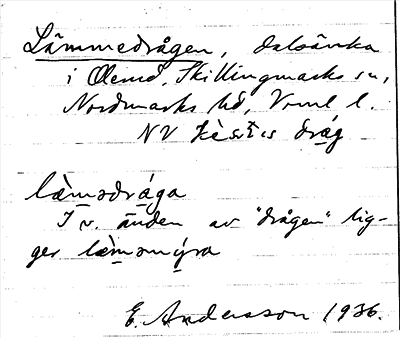 Lämmedrågen, dalsänka
i Ölmd, Skillingmarks sn,
Nordmarks hd, Vrml l.
NV
læ̀mədrága
I v. änden av "drågen" lig-
ger læ̀məmýra
E. Andersson 1936.